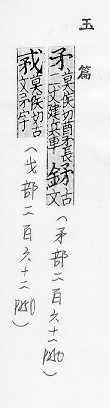 玉篇
矛莫侯切酋矛長二丈建兵車 古文
(矛部二百六十一 P240)
𢦧莫侯切古文矛字
(戈部二百六十二 P250)